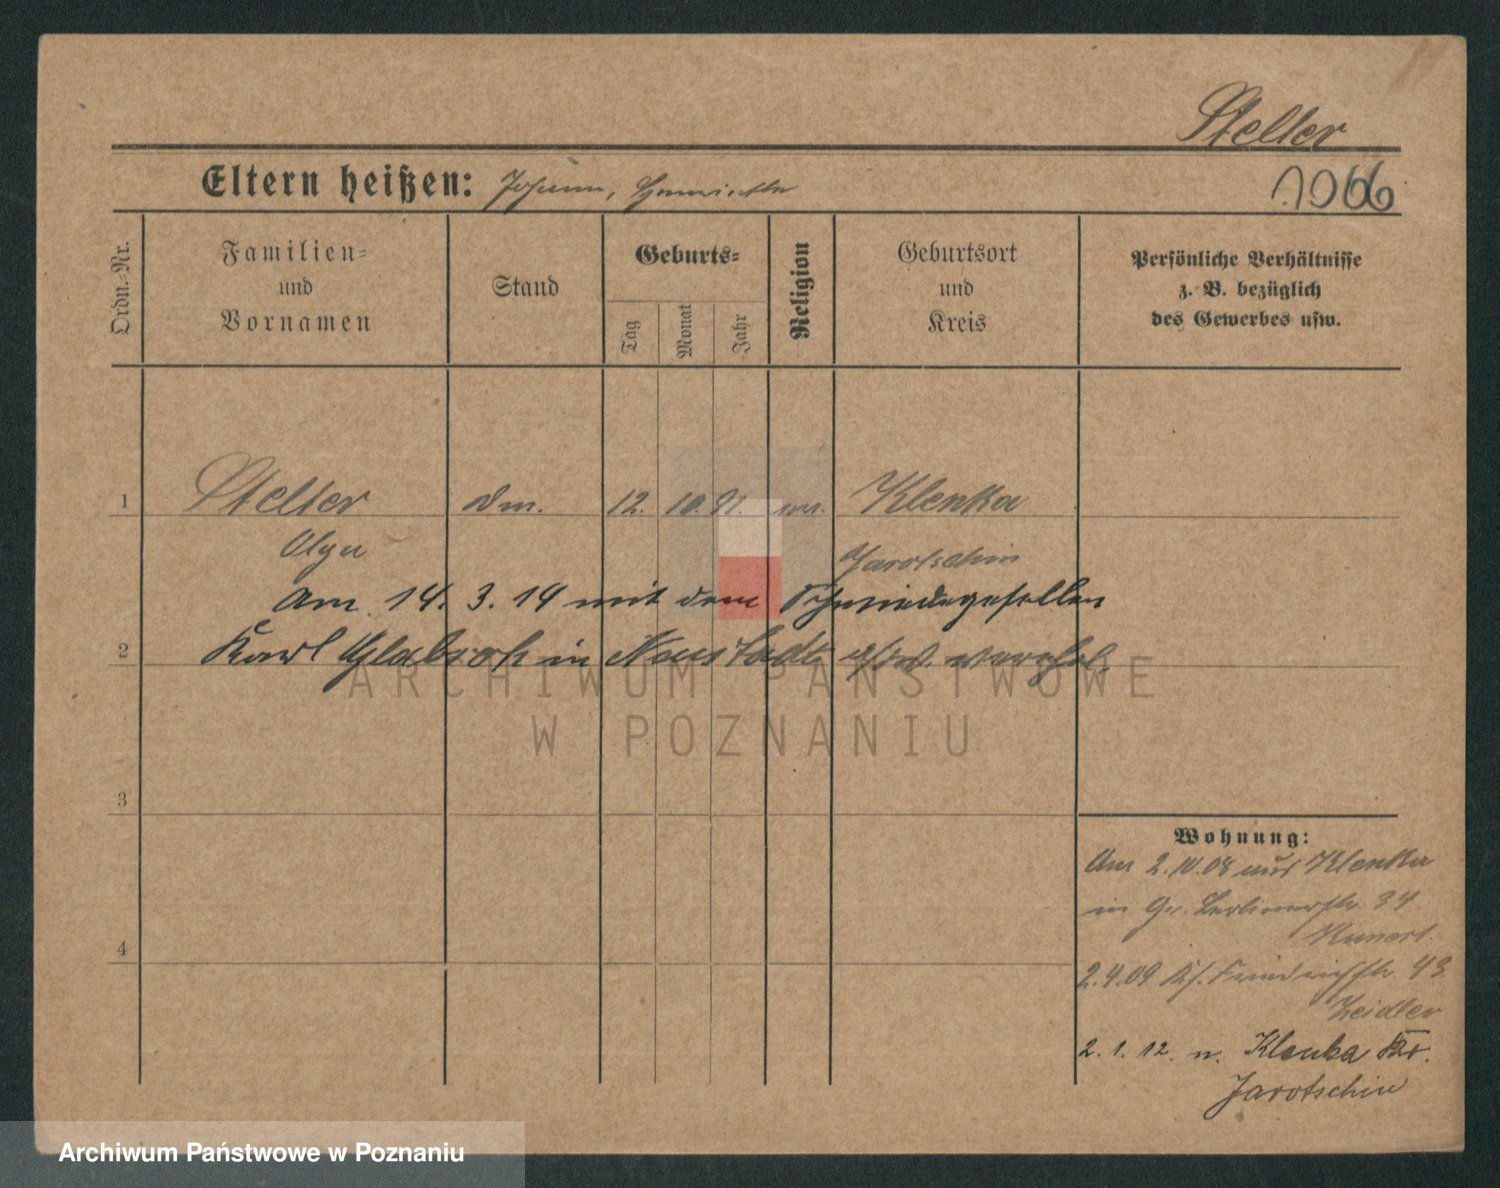 Steller
Eltern heißen: Johann, Henriette
1066
Ordn.-Nr.
Familien-
und
Vornamen
Stand
Geburts-
Tag
Monat
Jahr
Religion
Geburtsort
und
Kreis
Persönliche Verhältnisse
z. B. bezüglich
des Gewerbes usw.
1 Steller Dm. 12. 10. 91. Klenka
Olga Jarotschin
Am 14. 3. 14 mit dem Schmiedegesellen
2 Karl in Neustadt a/W. verehel.
ARCHIWUM PAŃSTWOWE
W POZNANIU
3
4
Wohnung:
Am 2.10.08 aus Klenka
in Gr. Berlinerstr. 34.
Kunert.
2.4.09 Friedrichstr. 43
Zeidler
2. 1. 12. n. Klenka Kr.
Jarotschin
Archiwum Państwowe w Poznaniu